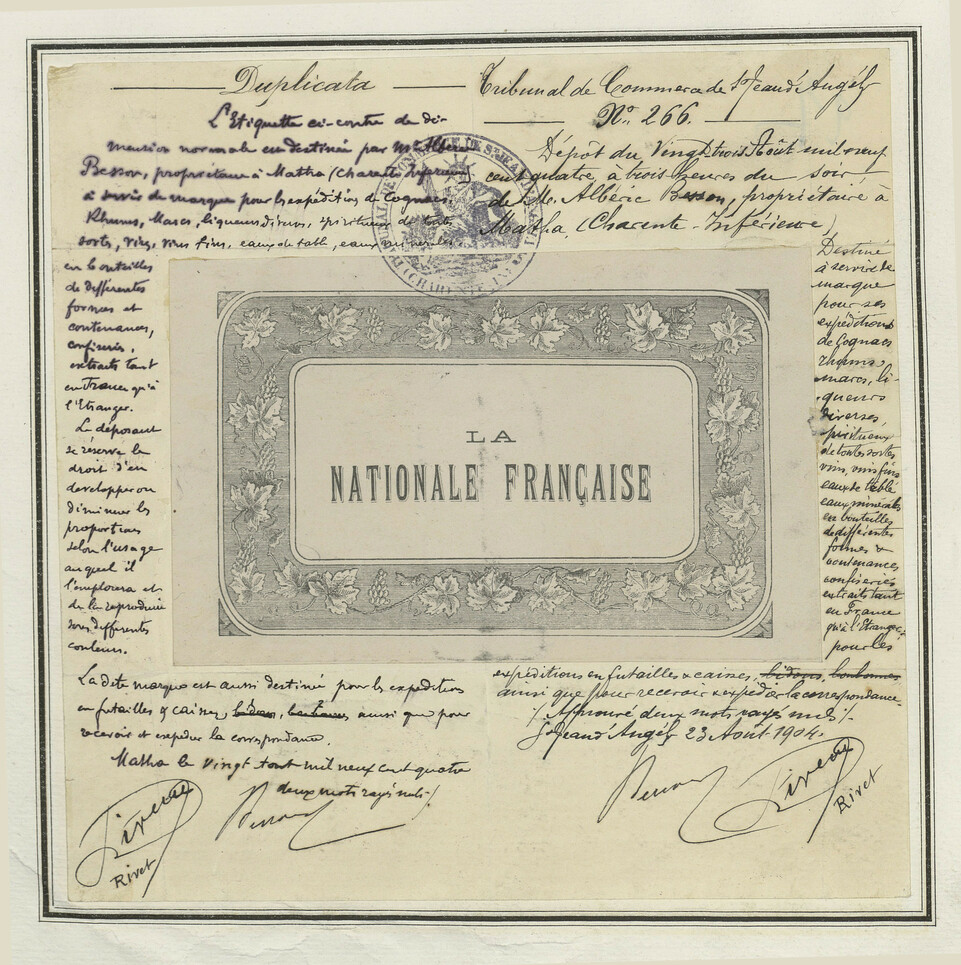 Duplicata
L'Etiquette ci-contre de di-
mension normale est destinée par Mr Alberic
Besson, propriétaire à Matha (Charente Inferieure)
à servir de marque pour les expéditions de Cognacs,
Rhums, Marcs, liqueurs divers, spiritueux de toutes
sortes, vins, vins fins, eaux de table, eaux minerales
en bouteilles
de differentes
formes et
contenances,
confiseries,
extraits tant
en France qu'à
l'Etranger.
Le déposant
se réserve le
droit d'en
developper ou
diminuer les
proportions
selon l'usage
auquel il
l'emploiera et
de la reproduire
sous differentes
couleurs.
La dite marque est aussi destinée pour les expeditions
en futailles & caisses, bidons, bonbonnes ainsi que pour
recevoir et expedier la correspondance.
Matha le vingt août mil neuf cent quatre
deux mots rayés nuls /.
Besson
Rivet
Tribunal de Commerce de St Jean d'Angély
No. 266.
Dépôt du Vingt trois Août mil neuf
cent quatre, à trois heures du soir
de M. Albéric Besson, propriétaire à
Matha, (Charente-Inférieure),
Destiné
à servir de
marque
pour ses
expéditions
de Cognacs
rhums,
marcs, li-
queurs
diverses,
spiritueux
de toutes sortes
vins, vins fins
eaux de table
eaux minérales
en bouteilles
de différentes
formes &
contenances
confiseries
extraits tant
en France
qu'à l'Etranger,
pour les
expéditions en futailles & caisses, bidons, bonbonnes
ainsi que pour recevoir & expédier la correspondance.
/. Approuvé deux mots rayés nuls /.
St Jean d'Angély 23 Août 1904.
Besson
Rivet
LA
NATIONALE FRANÇAISE